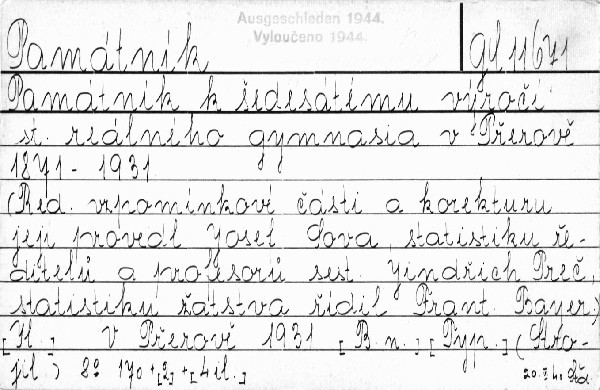 Ausgeschieden 1944.
Vyloučeno 1944.
Památník
gl 11671
Památník k šedesátému výročí
st. reálného gymnasia v Přerově
1871-1931
(Red. vzpomínkové části a korekturu
její provedl Josef Sova, statistiku ře-
ditelů a profesorů sest. Jindřich Preč,
statistiku žactva řídil Frant. Bayer.)
[Il.] V Přerově 1931 [B. n.] [Typ.] (Stro-
jil) 8° 170+[2]+[4 il.]